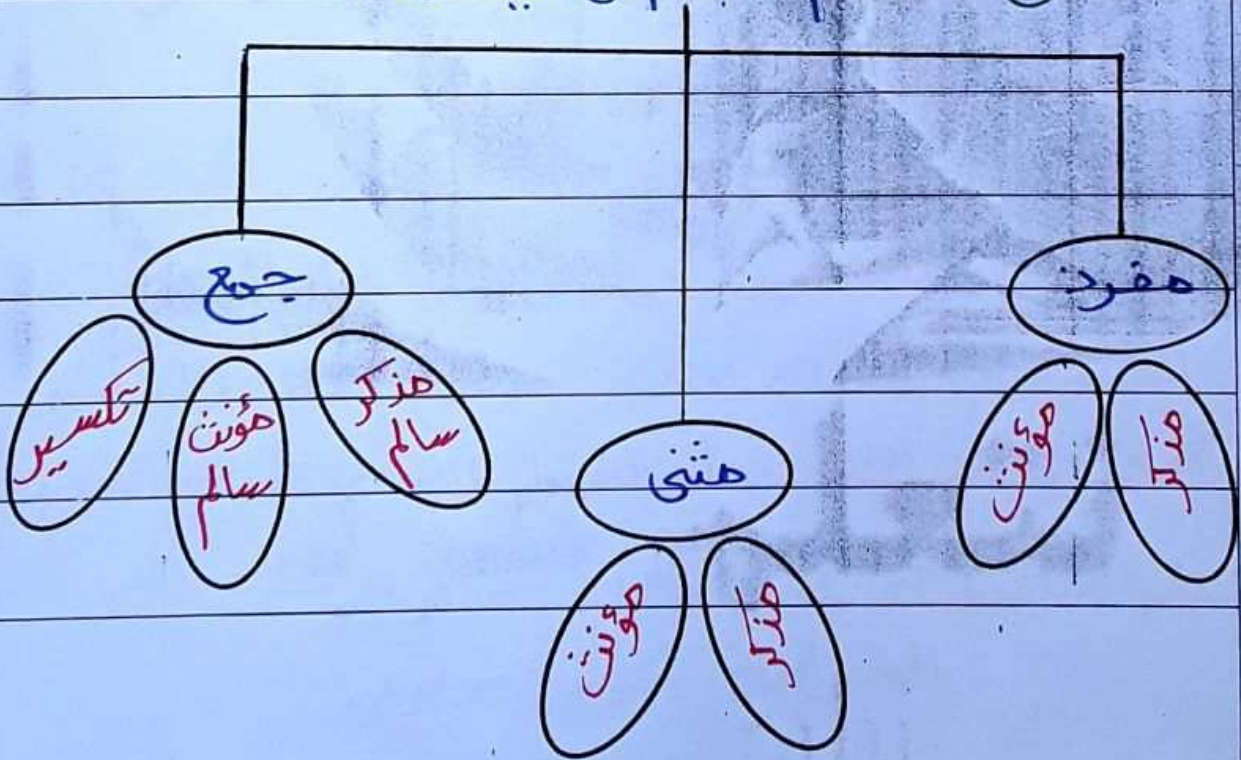 مفرد
مذكر
مؤنث
مثنى
مذكر
مؤنث
جمع
مذكر
سالم
مؤنث
سالم
تكسير